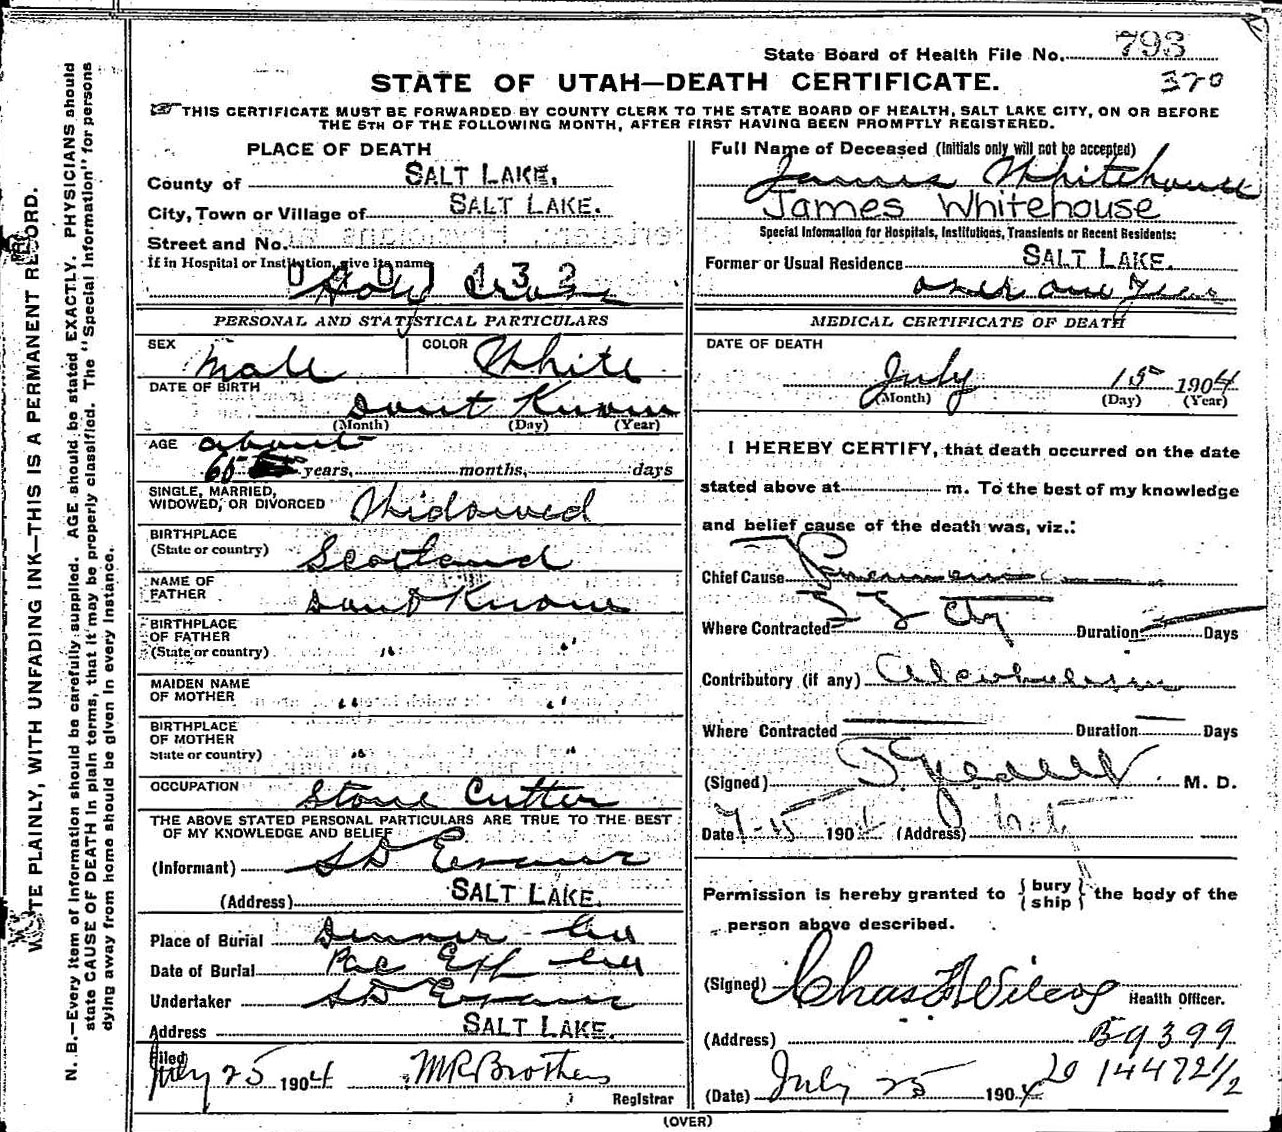 State Board of Health File No. 793
STATE OF UTAH—DEATH CERTIFICATE. 370
THIS CERTIFICATE MUST BE FORWARDED BY COUNTY CLERK TO THE STATE BOARD OF HEALTH, SALT LAKE CITY, ON OR BEFORE
THE 5TH OF THE FOLLOWING MONTH, AFTER FIRST HAVING BEEN PROMPTLY REGISTERED.
PLACE OF DEATH
County of SALT LAKE.
City, Town or Village of SALT LAKE.
Street and No.
If in Hospital or Institution, give its name
0401132
Holy Cross
PERSONAL AND STATISTICAL PARTICULARS
SEX Male COLOR White
DATE OF BIRTH
Dont Know
(Month) (Day) (Year)
AGE about
65 years, months, days
SINGLE, MARRIED,
WIDOWED, OR DIVORCED Widowed
BIRTHPLACE
(State or country) Scotland
NAME OF
FATHER Dont Know
BIRTHPLACE
OF FATHER
(State or country) " "
MAIDEN NAME
OF MOTHER " "
BIRTHPLACE
OF MOTHER
State or country) " "
OCCUPATION Stone Cutter
THE ABOVE STATED PERSONAL PARTICULARS ARE TRUE TO THE BEST
OF MY KNOWLEDGE AND BELIEF
(Informant) S D Evans
(Address) SALT LAKE.
Place of Burial
Date of Burial
Undertaker S D Evans
Address SALT LAKE.
Filed
July 25 1904 M R Brothers
Registrar
Full Name of Deceased (Initials only will not be accepted)
James Whitehouse
James Whitehouse
Special Information for Hospitals, Institutions, Transients or Recent Residents:
Former or Usual Residence SALT LAKE.
over one Year
MEDICAL CERTIFICATE OF DEATH
DATE OF DEATH
July 15 1904
(Month) (Day) (Year)
I HEREBY CERTIFY, that death occurred on the date
stated above at m. To the best of my knowledge
and belief cause of the death was, viz.:
Chief Cause Pneumonia
Where Contracted S L City Duration Days
Contributory (if any) Alcoholism
Where Contracted Duration Days
(Signed) M. D.
Date 7-15 1904 (Address)
Permission is hereby granted to { bury
ship } the body of the
person above described.
(Signed) Chas F Wilcox Health Officer.
(Address) B 9399
(Date) July 25 1904 Lo 14472 1/2
(OVER)
WRITE PLAINLY, WITH UNFADING INK—THIS IS A PERMANENT RECORD.
N. B.—Every item of information should be carefully supplied. AGE should be stated EXACTLY. PHYSICIANS should
state CAUSE OF DEATH in plain terms, that it may be properly classified. The "Special Information" for persons
dying away from home should be given in every instance.